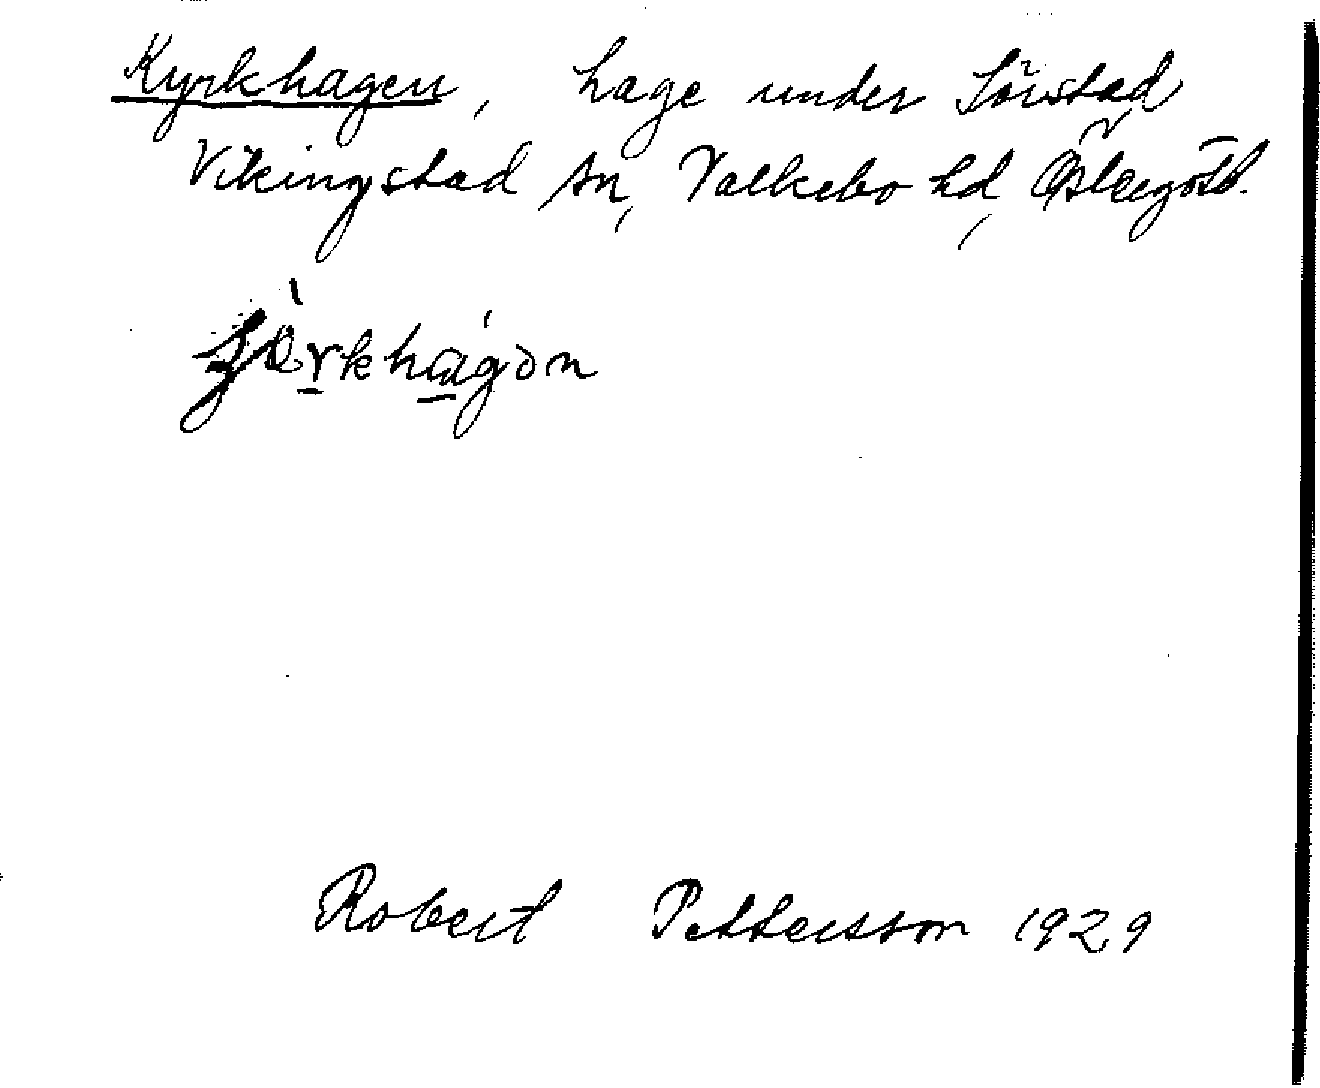 Kyrkhagen, hage under Sörstad
Vikingstad sn, Valkebo hd, Östergötl.
Robert Pettersson 1929